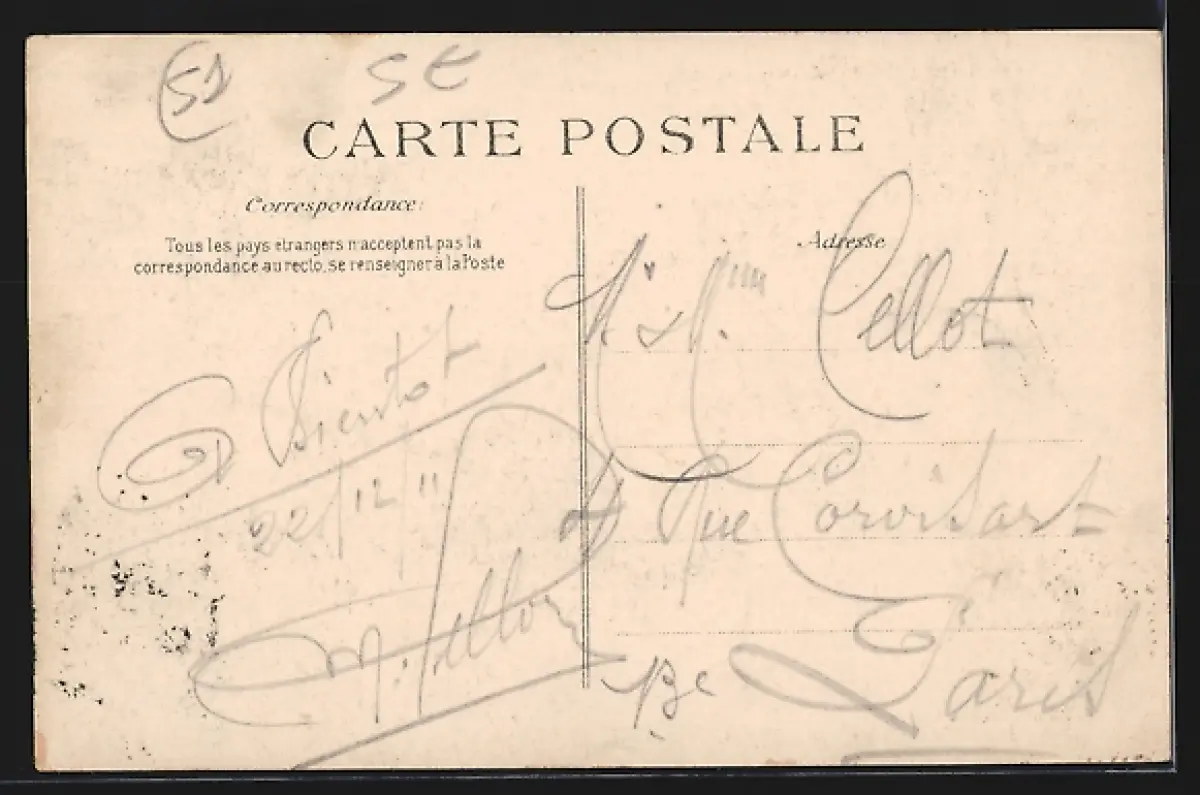 51 SE
CARTE POSTALE
Correspondance:
Tous les pays etrangers n'acceptent pas la
correspondance au recto, se renseigner à la Poste
Adresse
Cellot
A Bientot
22/12/11
Rue Corvisart
Paris